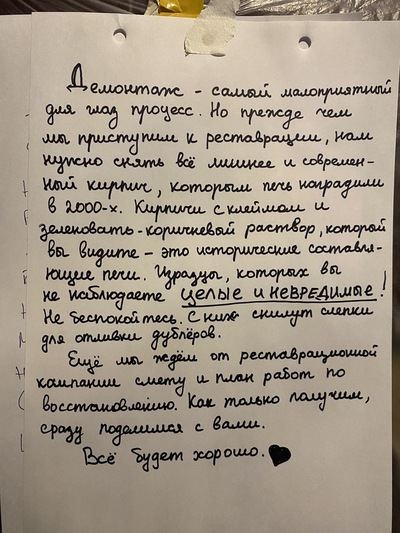 Демонтаж - самый малоприятный
для глаз процесс. Но прежде чем
мы приступим к реставрации, нам
нужно снять всё лишнее и современ-
ный кирпич, которым печь наградили
в 2000-х. Кирпичи с клеймом и
зеленовато-коричневый раствор, который
вы видите - это исторические составля-
ющие печи. Изразцы, которых вы
не наблюдаете ЦЕЛЫЕ И НЕВРЕДИМЫЕ!
Не беспокойтесь. С них снимут слепки
для отливки дублёров.
Ещё мы ждём от реставрационной
кампании смету и план работ по
восстановлению. Как только получим,
сразу поделимся с вами.
Всё будет хорошо. ♥